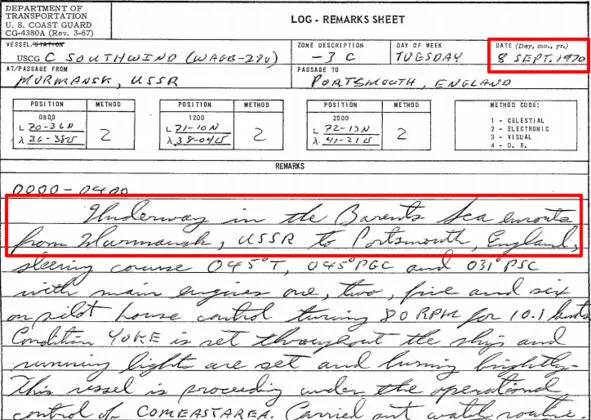 DEPARTMENT OF
TRANSPORTATION
U. S. COAST GUARD
CG-4380A (Rev. 3-67)
LOG - REMARKS SHEET
VESSEL/STATION
USCG C SOUTHWIND (WAGB-280)
ZONE DESCRIPTION
-3 C
DAY OF WEEK
TUESDAY
DATE (Day, mo., yr.)
8 SEPT. 1970
AT/PASSAGE FROM
MURMANSK, USSR
PASSAGE TO
PORTSMOUTH, ENGLAND
POSITION METHOD POSITION METHOD POSITION METHOD METHOD CODE:
0800 1200 2000
L 70-36N L 71-10N L 72-13N
λ λ λ
2 2 2
1 - CELESTIAL
2 - ELECTRONIC
3 - VISUAL
4 - D. R.
REMARKS
0000-0400
Underway in the Barents Sea enroute
from Murmansk, USSR to Portsmouth, England,
steering course 045°T, 045°PGC and 031°PSC
with main engines one, two, five and six
on pilot house control turning 80 RPM for 10.1 knots.
Condition YOKE is set throughout the ship and
running lights are set and burning brightly.
This vessel is proceeding under the operational
control of COMEASTAREA. Carried out watch routine.